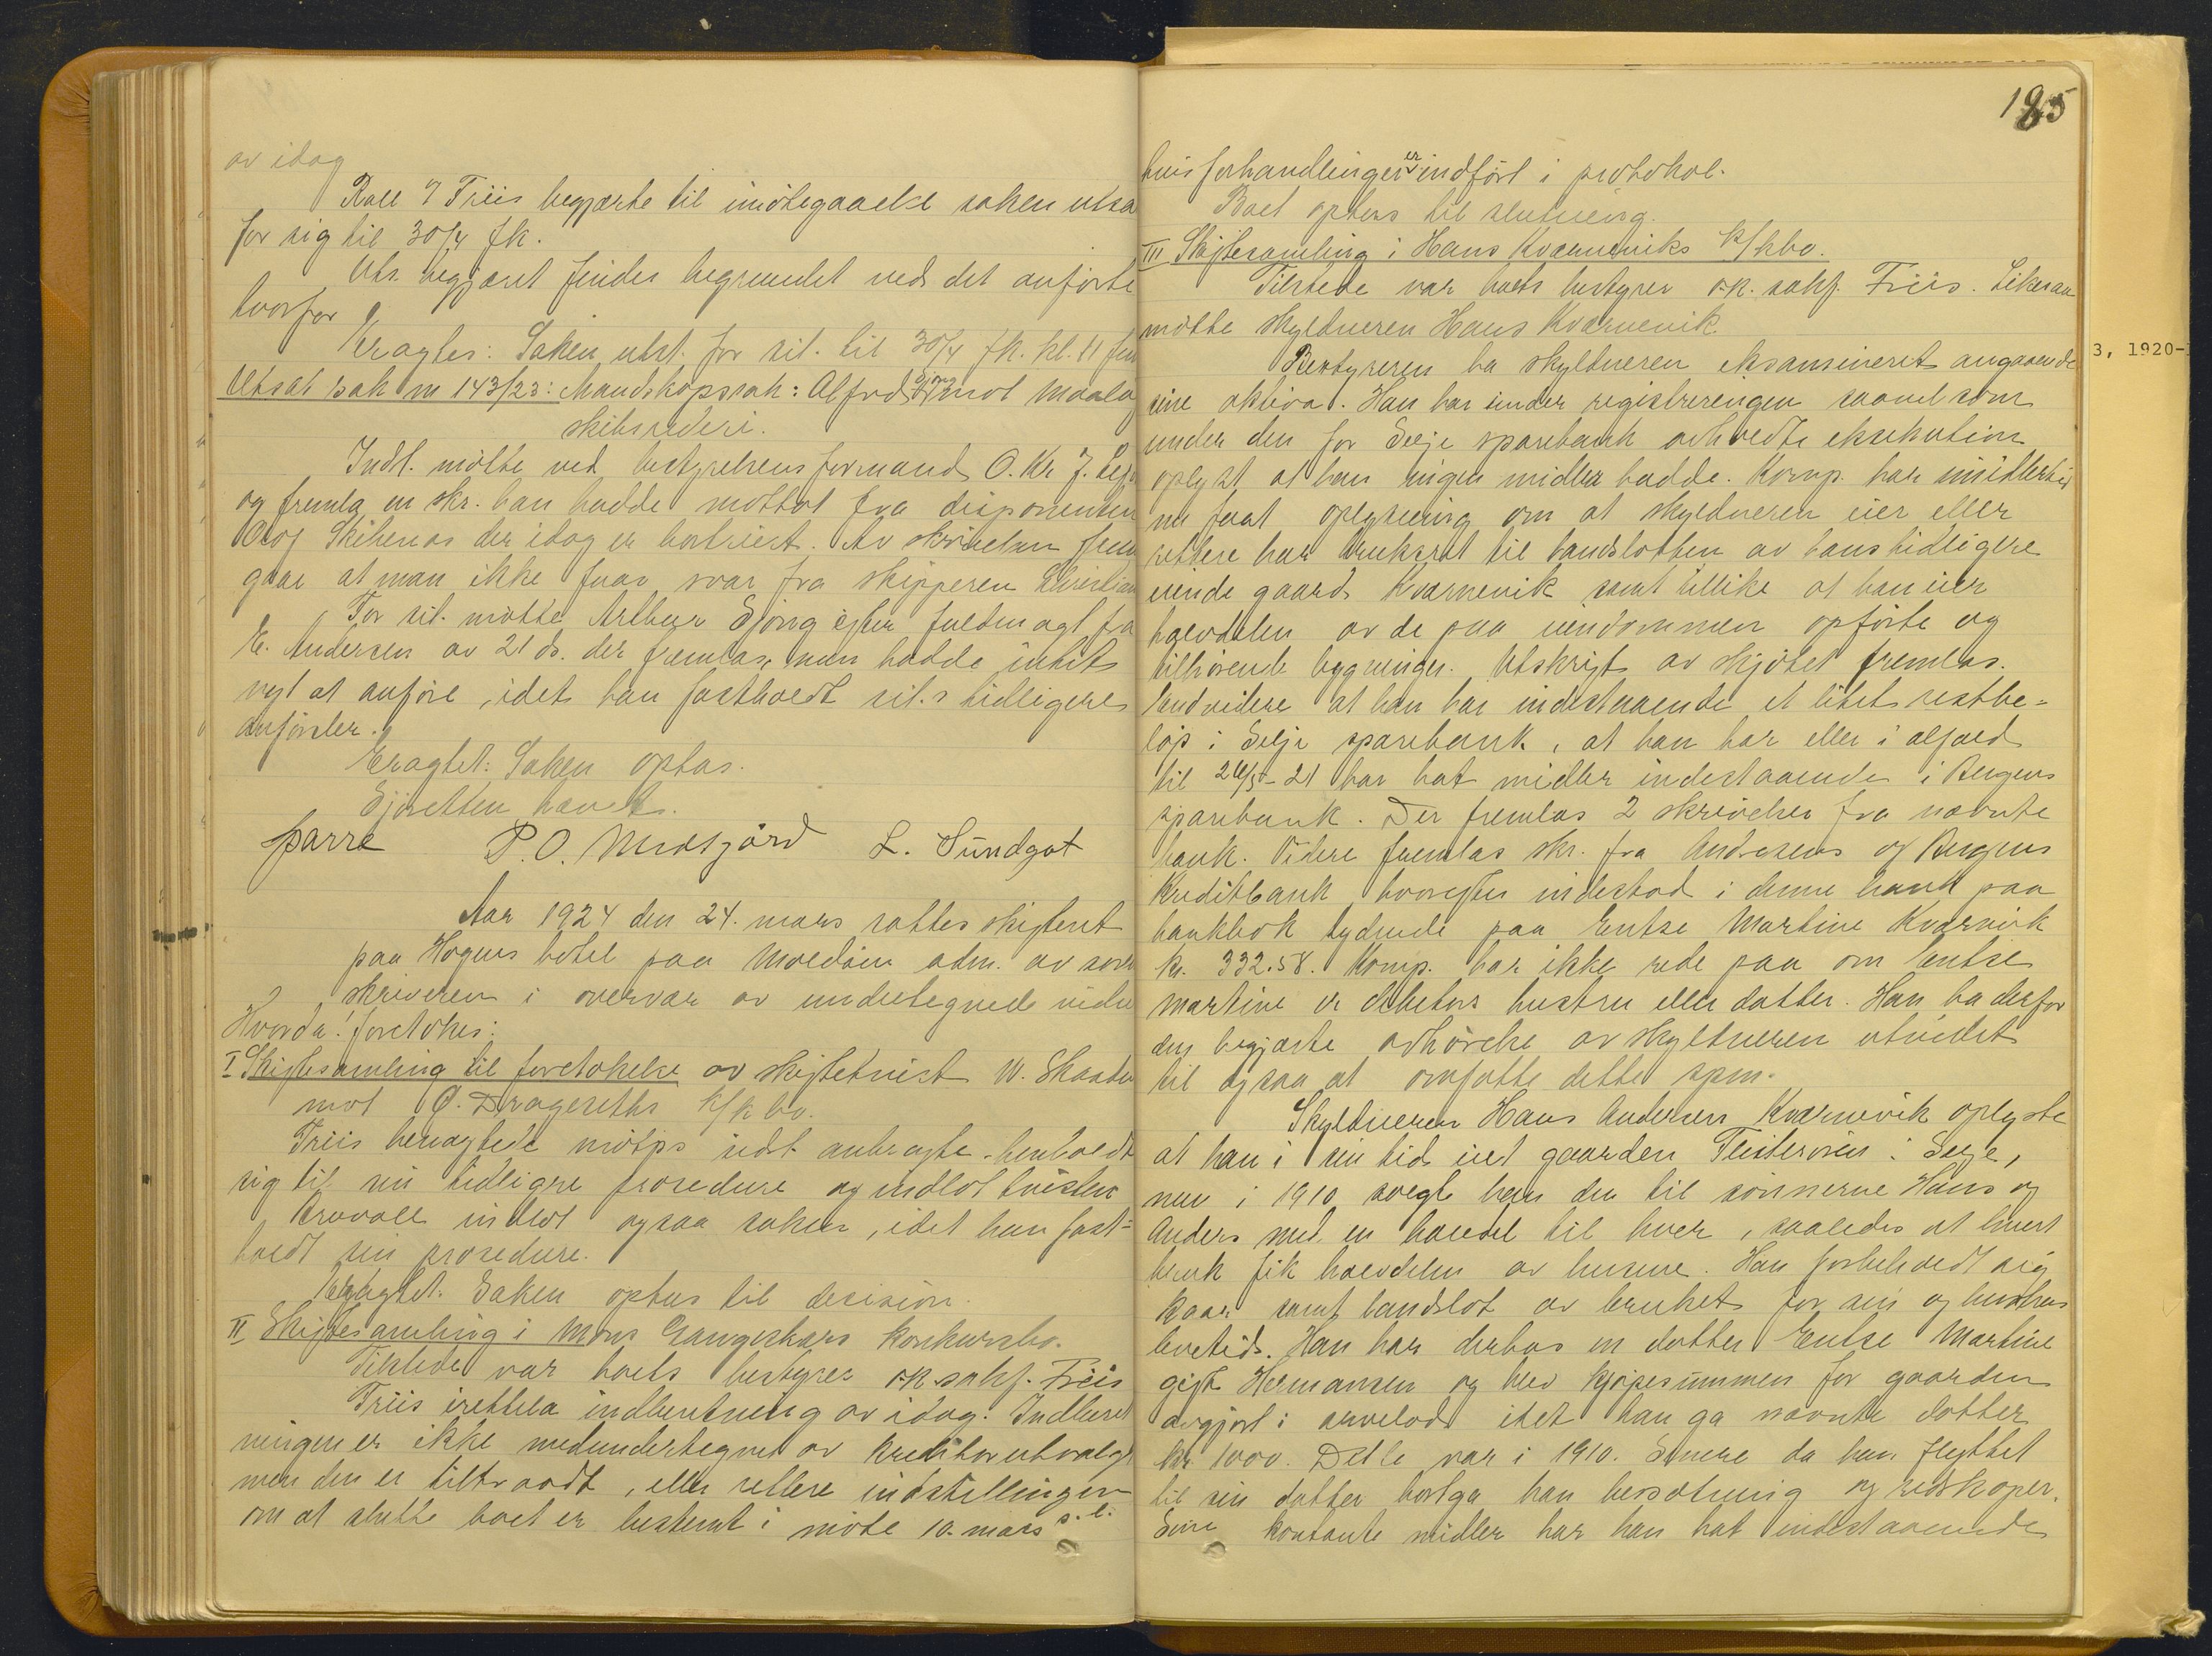 av idag
Rall & Friis begjærte til imøtegaaelse saken utsa
for sig til 30/4 fk.
Uts. begjæret findes begrundet ved det anførte
hvorfor
Eragtes: Saken utst. for sit. til 30/4 fk. kl. 11 fm
Utsat sak nr 143/23: Mandskapssak: Alfred mot Maaløy
skibsrederi.
Indst. møtte ved bestyrelsens formand O. Kr. J.
og fremla en skr. han hadde mottat fra disponenten
Olof Skibenes der idag er bortreist. Av skrivelsen frem
gaar at man ikke faar svar fra skipperen Christian
For sit. møtte Arthur Sjong efter fuldmagt fra
E. Andersen av 21 ds. der fremlas, men hadde intet
nyt at anføre, idet han fastholdt sit.s tidligere
anførsler.
Eragtet: Saken optas.
Sjøretten hævet.
Sparre P. O. Midtgård L. Sundgot
Aar 1924 den 24. mars sattes skifteret
paa Hagens hotel paa Moldøen adm. av soren
skriveren i overvær av undertegnede vidne
Hvorda! foretokes:
I Skiftesamling til foretakelse av skiftetvist W. Skaate
mot O. Drageseths k/k bo.
Friis benegtede motp.s sidst anbragte, henholdt
sig til sin tidligere procedure og indlot tvisten
Krovoll indlot ogsaa saken, idet han fast-
holdt sin procedure.
Eragtet: Saken optas til decision.
II Skiftesamling i Mons Gangeskars konkursbo.
Tilstede var boets bestyrer o.r.sakf. Friis
Friis irettela indberetning av idag. Indberet
ningen er ikke medundertegnet av kreditorutvalget
men den er tiltraadt, eller rettere indstillingen
om at slutte boet er bestemt i møte 10. mars s. l.
185
hvis forhandlinger er indført i protokol.
Boet optas til slutning.
III Skiftesamling i Hans Kvarneviks k/kbo.
Tilstede var boets bestyrer o.r. sakf. Friis. Likesaa
møtte skyldneren Hans Kvarnevik.
Bestyreren ba skyldneren eksamineret angaaende
sine aktiva. Han har under registreringen saavel som
under den for Selje sparebank avholdte eksekution
oplyst at han ingen midler hadde. Komp. har imidlertid
nu faat oplysning om at skyldneren eier eller
rettere har bruksret til landslotten av hans tidligere
eiende gaard Kvarnevik samt tillike at han eier
halvdelen av de paa eiendommen opførte og
tilhørende bygninger. Utskrift av skjøtet fremlas.
Endvidere at han har indestaaende et litet restbe-
løp i Selje sparebank, at han har eller i alfald
til 26/5-21 har hat midler indestaaende i Bergens
sparebank. Der fremlas 2 skrivelser fra nævnte
bank. Videre fremlas skr. fra Andresens og Bergens
Kreditbank hvorefter indestod i denne bank paa
bankbok lydende paa Entse Martine Kvarnvik
kr. 332.58. Komp. har ikke rede paa om Entse
Martine er debitors hustru eller datter. Han ba derfor
den begjærte avhørelse av skyldneren utvidet
til ogsaa at omfatte dette spm.
Skyldneren Hans Andersen Kvarnevik oplyste
at han i sin tid eiet gaarden Flistervin i Selje,
men i 1910 solgte han den til sønnerne Hans og
Anders med en halvdel til hver, saaledes at hvert
bruk fik halvdelen av husene. Han forbeholdt sig
kaar samt landslot av bruket for sin og hustrus
levetid. Han har derhos en datter Entse Martine
gift Hermansen og blev kjøpesummen for gaarden
avgjort i arvelod idet han ga nævnte datter
kr. 1000. Dette var i 1910. Senere da han flyttet
til sin datter bortga han besætning og redskaper.
Sine kontante midler har han hat indestaaende
3, 1920-